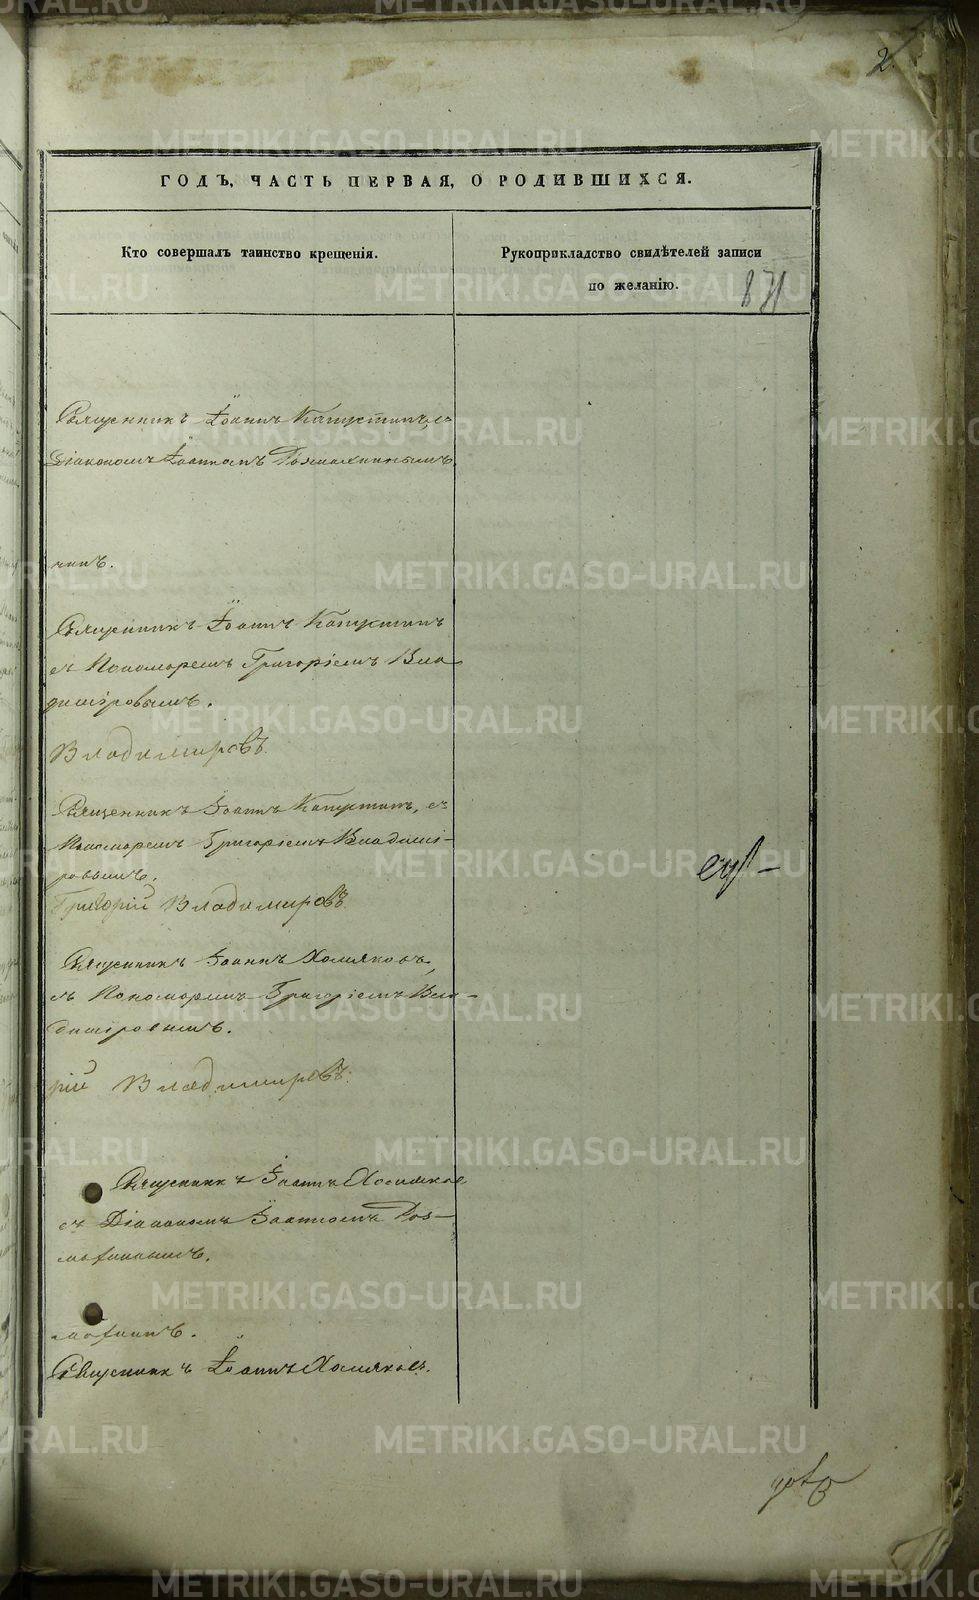 2.
ГОДЪ, ЧАСТЬ ПЕРВАЯ, О РОДИВШИХСЯ.
Кто совершалъ таинство крещенія.
Рукоприкладство свидѣтелей записи
по желанію.
871
Священникъ Іоаннъ Капустинъ, съ
Діакономъ Іоанномъ
чинъ.
Священникъ Іоаннъ Капустинъ
съ Пономаремъ Григоріемъ Вла-
диміровымъ.
Владимировъ
Священникъ Іоаннъ Капустинъ, съ
Пономаремъ Григоріемъ Владимі-
ровымъ.
Григорій Владимировъ
Священникъ Іоаннъ Хомяковъ,
съ Пономаремъ Григоріемъ Вла-
диміровымъ.
рій Владимировъ
Священникъ Іоаннъ Хомяков
съ Діакономъ Іоанномъ
Священникъ Іоаннъ Хомяковъ.
METRIKI.GASO-URAL.RU